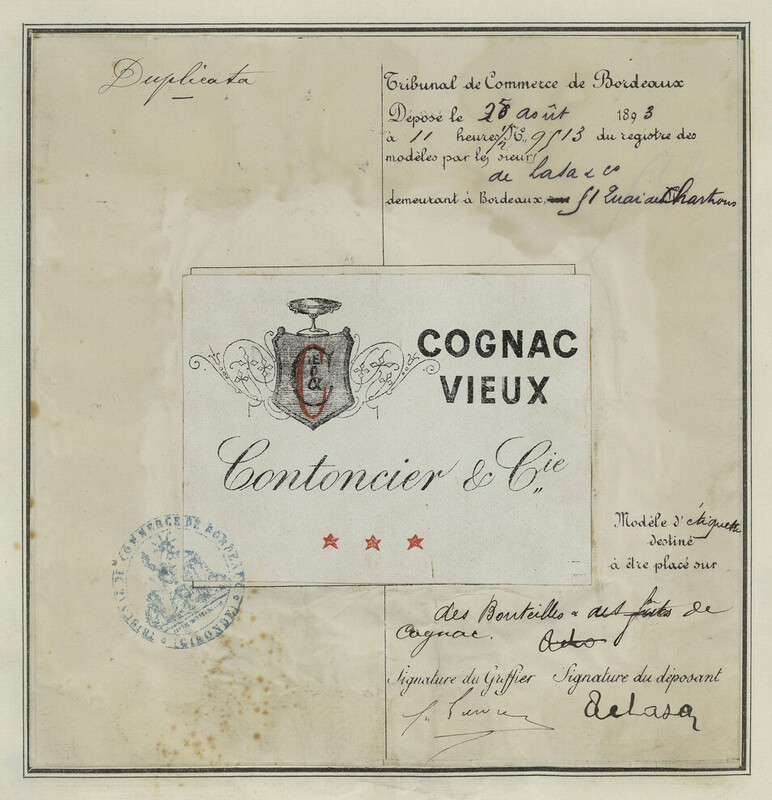 Duplicata
Tribunal de Commerce de Bordeaux
Déposé le 28 août 1893
à 11 heures ½ N° 9513 du registre des
modèles par les sieurs
de Lasa & Co
demeurant à Bordeaux, 51 Quai des Chartrons
COGNAC
VIEUX
Contoncier & Cie
Modèle d'étiquette
destiné
à être placé sur
des Bouteilles & des fûts de
Cognac.
TRIBUNAL DE COMMERCE DE BORDEAUX
(GIRONDE)
Signature du Greffier Signature du déposant
de Lasa